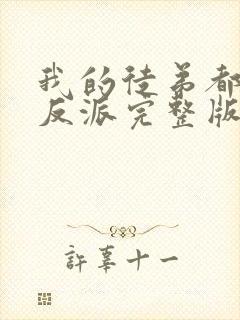 我的徒弟都
反派完整版
許辜十一